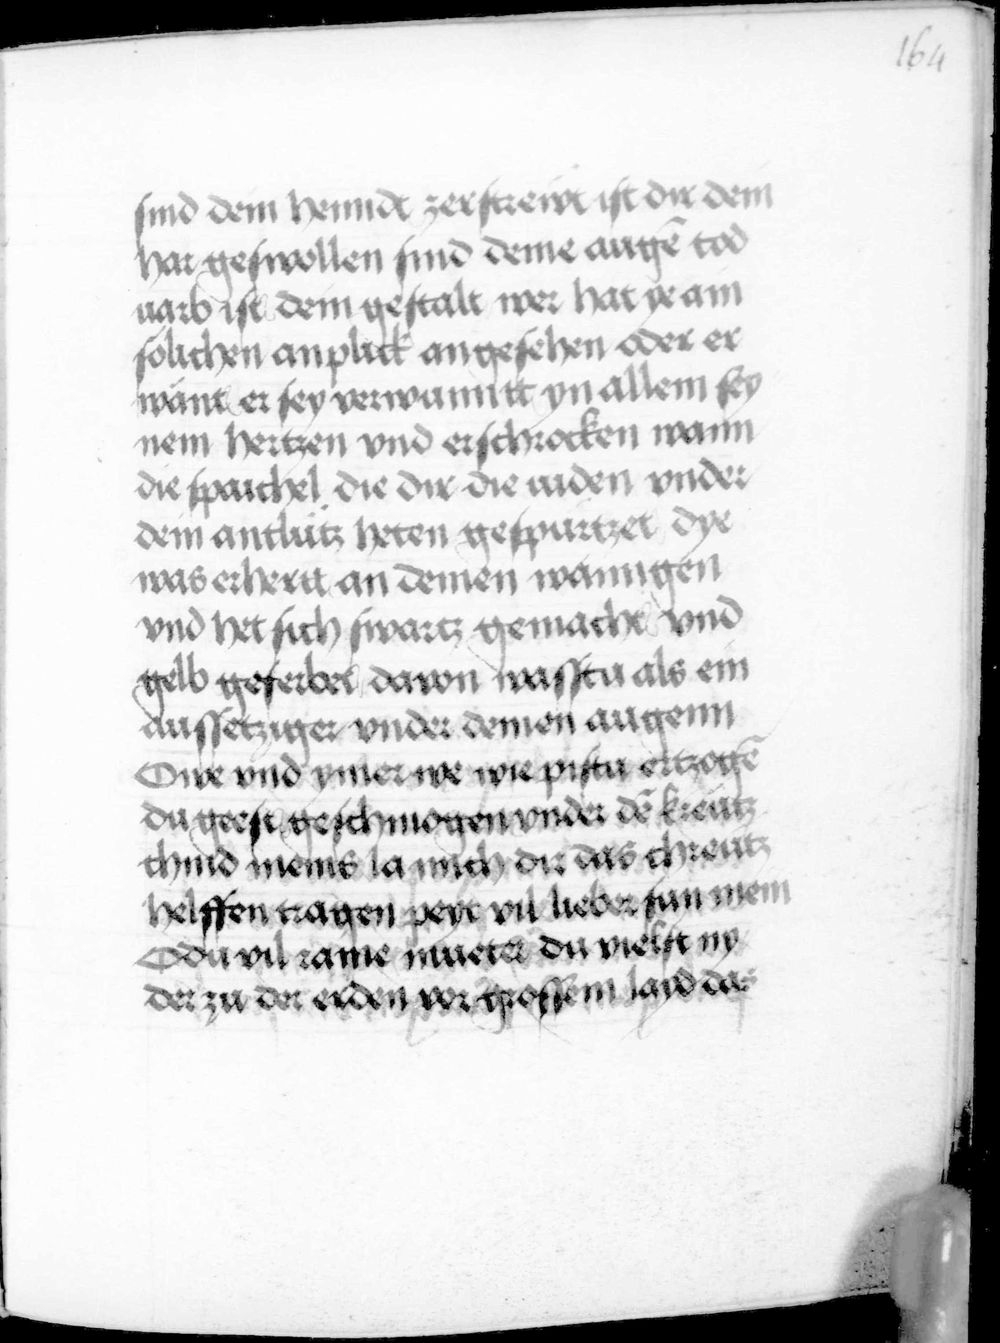 164
sind dein henndt zerstrewt ist dir dein
har geswollen sind deine augē tod
uarb ist dein gestalt wer hat ye ain
sölichen anplick angesehen oder er
wänt er sey verwanntt yn allem sey
nem hertzen vnd erschrocken wann
die spaichel die dir die iuden vnder
dein antlütz heten gespürtzet dye
was erhertt an deinen wanngen
vnd het sich swartz gemacht vnd
gelb geferbet dauon wasstu als ein
aussetziger vnder deinen augenn
Owe vnd ymer we wie pistu ertzogē
du geest geschmogen vnder dē kreutz
chind meins la mich dir das chreutz
helffen tragen peyt vil lieber sun mein
O du vil raine mueter du vielst ny
der zu der erden vor grossem layd das